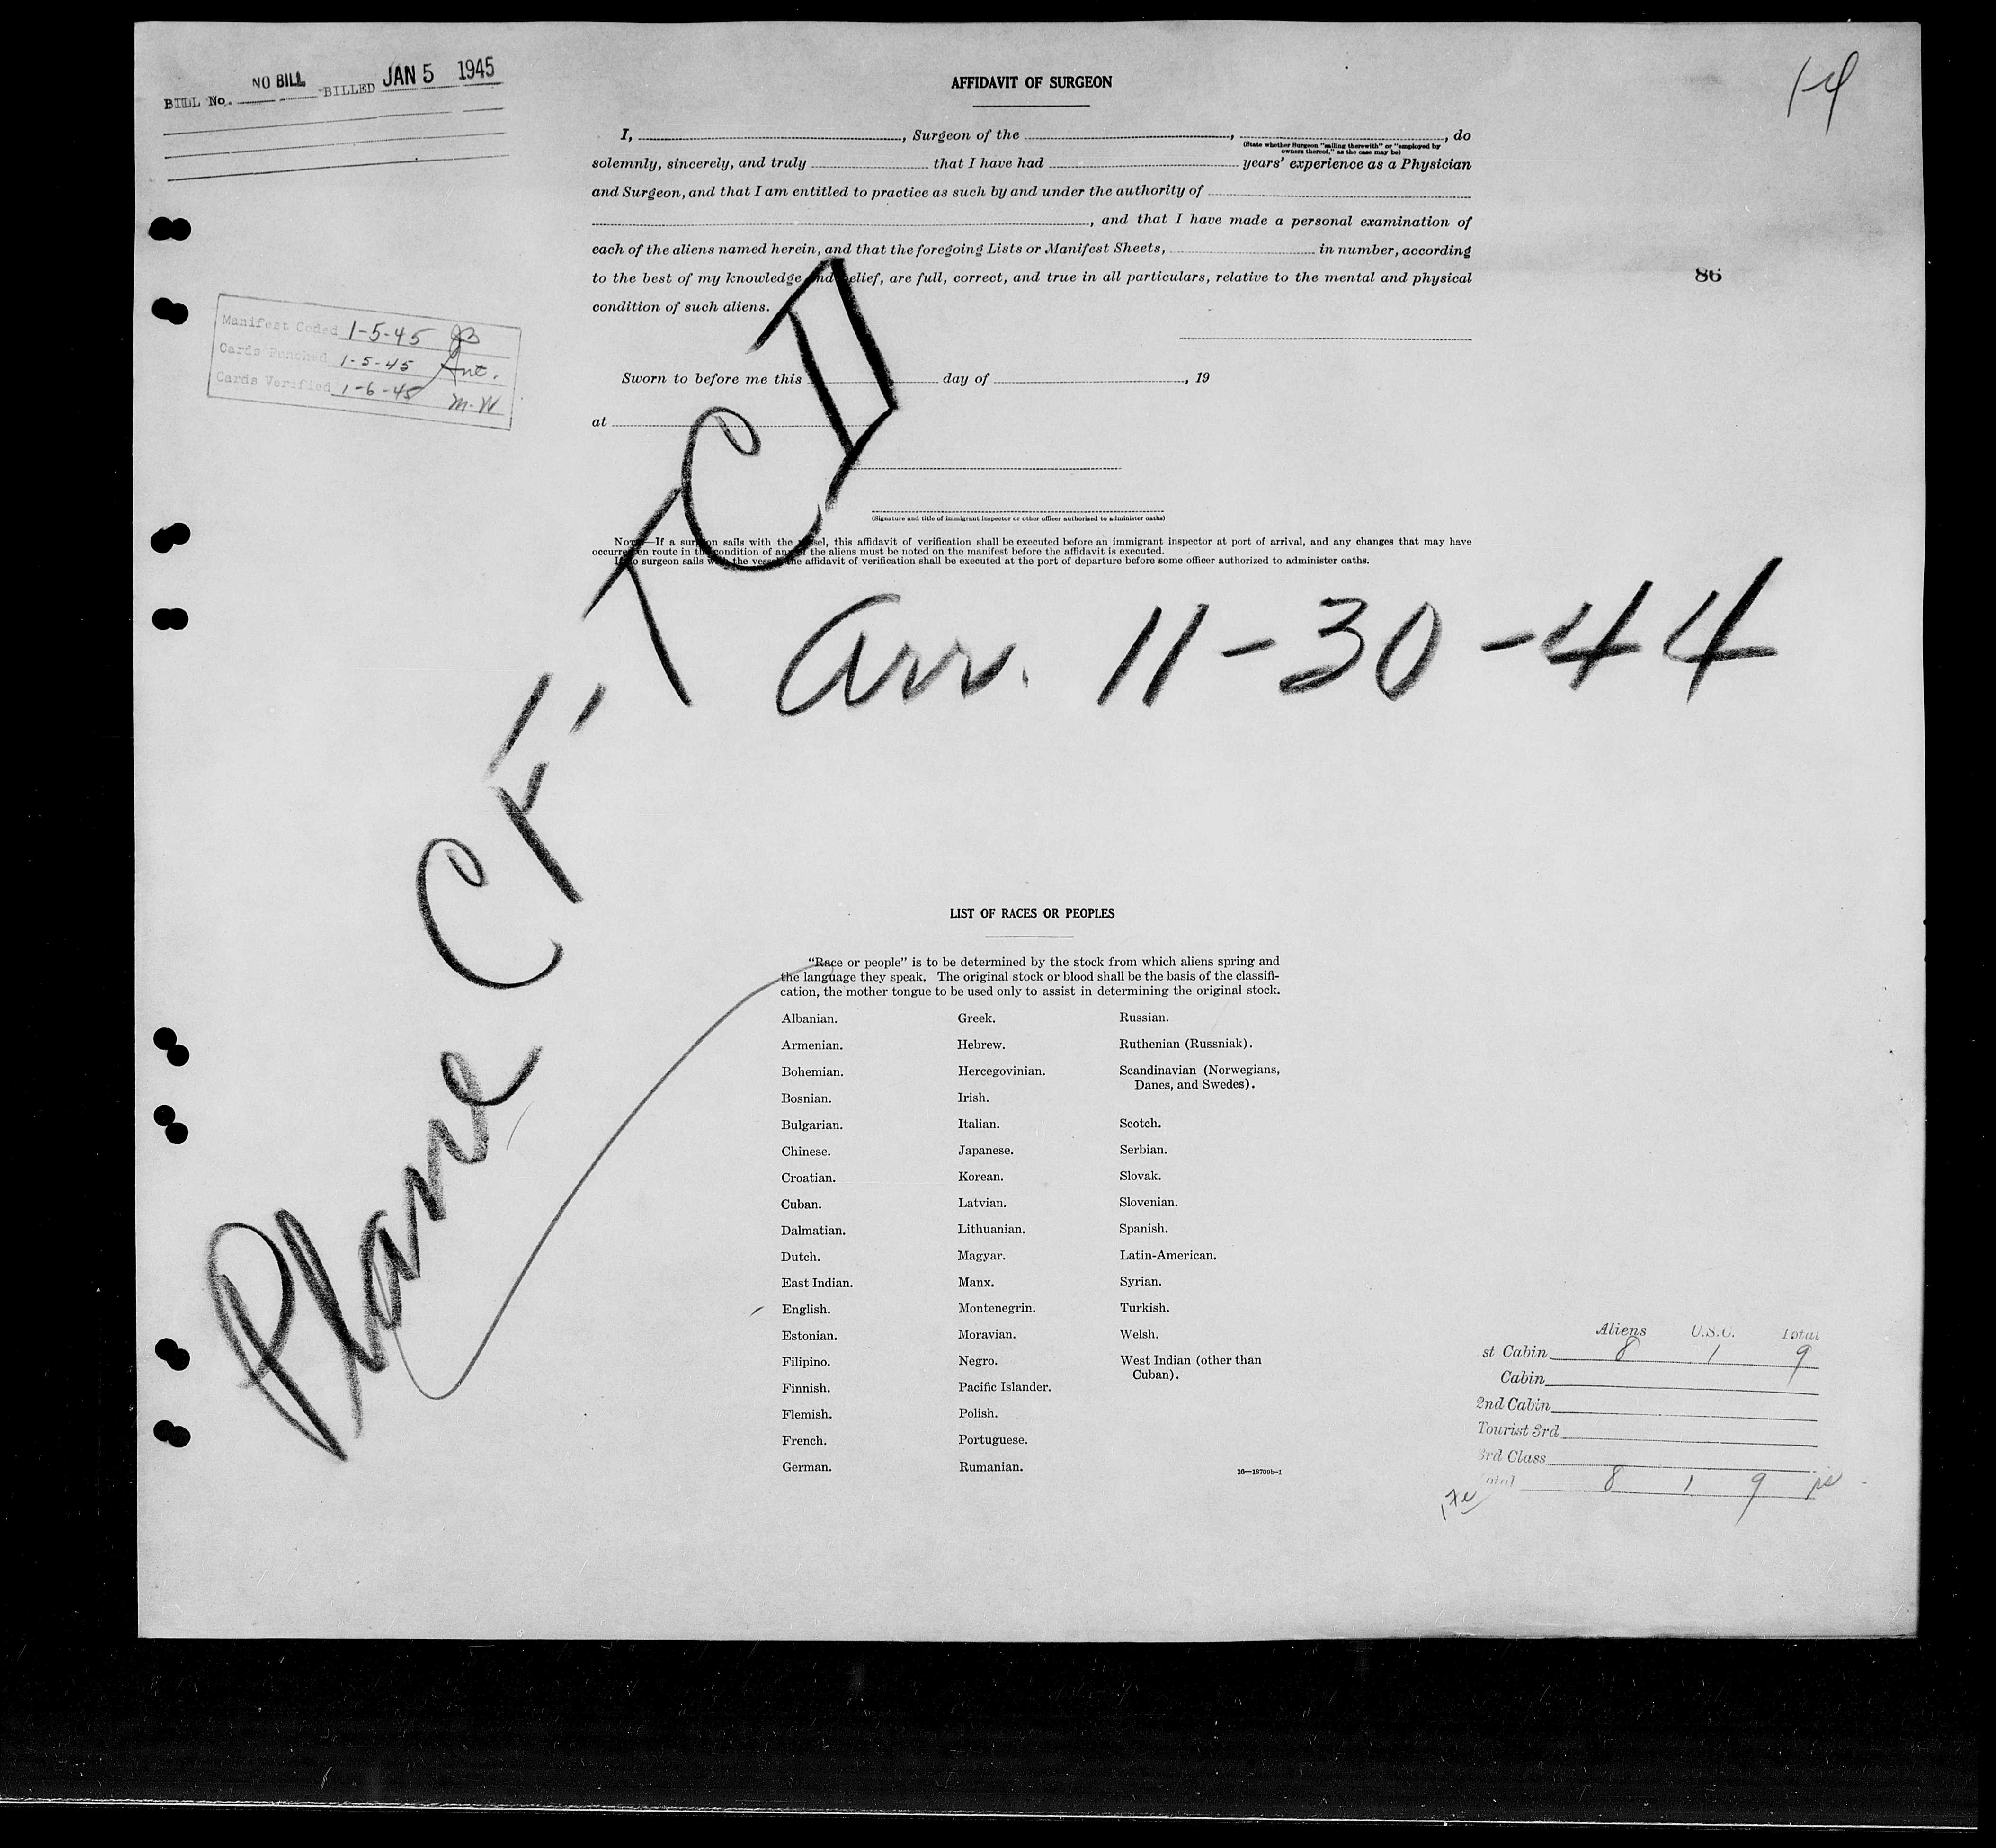 BILL No. NO BILL BILLED JAN 5 1945
14
AFFIDAVIT OF SURGEON
I, , Surgeon of the , , do
(State whether Surgeon "sailing therewith" or "employed by
owners thereof," as the case may be)
solemnly, sincerely, and truly that I have had years' experience as a Physician
and Surgeon, and that I am entitled to practice as such by and under the authority of
, and that I have made a personal examination of
each of the aliens named herein, and that the foregoing Lists or Manifest Sheets, in number, according
to the best of my knowledge and belief, are full, correct, and true in all particulars, relative to the mental and physical
condition of such aliens.
86
Manifest Coded 1-5-45
Cards Punched 1-5-45 Ant.
Cards Verified 1-6-45 M.W
Sworn to before me this day of , 19
at
(Signature and title of immigrant inspector or other officer authorized to administer oaths)
NOTE.—If a surgeon sails with the vessel, this affidavit of verification shall be executed before an immigrant inspector at port of arrival, and any changes that may have
occurred en route in the condition of any of the aliens must be noted on the manifest before the affidavit is executed.
If no surgeon sails with the vessel the affidavit of verification shall be executed at the port of departure before some officer authorized to administer oaths.
Plane CF-TCD
Arr. 11-30-44
LIST OF RACES OR PEOPLES
"Race or people" is to be determined by the stock from which aliens spring and
the language they speak. The original stock or blood shall be the basis of the classifi-
cation, the mother tongue to be used only to assist in determining the original stock.
Albanian. Greek. Russian.
Armenian. Hebrew. Ruthenian (Russniak).
Bohemian. Hercegovinian. Scandinavian (Norwegians,
Danes, and Swedes).
Bosnian. Irish.
Bulgarian. Italian. Scotch.
Chinese. Japanese. Serbian.
Croatian. Korean. Slovak.
Cuban. Latvian. Slovenian.
Dalmatian. Lithuanian. Spanish.
Dutch. Magyar. Latin-American.
East Indian. Manx. Syrian.
English. Montenegrin. Turkish.
Estonian. Moravian. Welsh.
Filipino. Negro. West Indian (other than
Cuban).
Finnish. Pacific Islander.
Flemish. Polish.
French. Portuguese.
German. Rumanian.
16—18709b-1
Aliens U.S.C. Total
st Cabin 8 1 9
Cabin
2nd Cabin
Tourist 3rd
3rd Class
otal 8 1 9